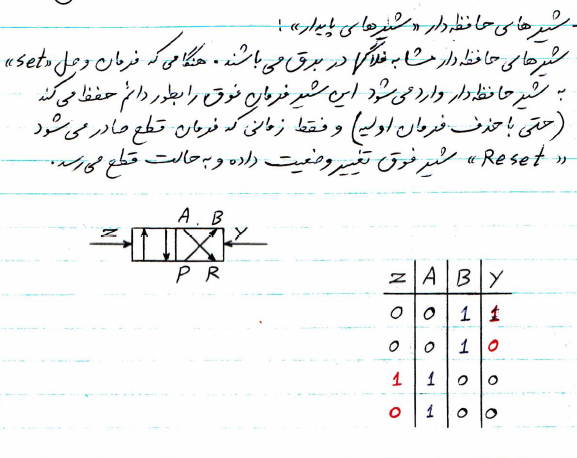 شیرهای حافظه دار «شیرهای پایدار» :
شیرهای حافظه دار مشابه فلاگها در برق می باشند. هنگامی که فرمان وصل «set»
به شیر حافظه دار وارد می شود این شیر فرمان فوق را بطور دائم حفظ می کند
(حتی با حذف فرمان اولیه) و فقط زمانی که فرمان قطع صادر می شود
«Reset» شیر فوق تغییر وضعیت داده و به حالت قطع می رسد.
A B
Z Y
P R
Z A B Y
0 0 1 1
0 0 1 0
1 1 0 0
0 1 0 0